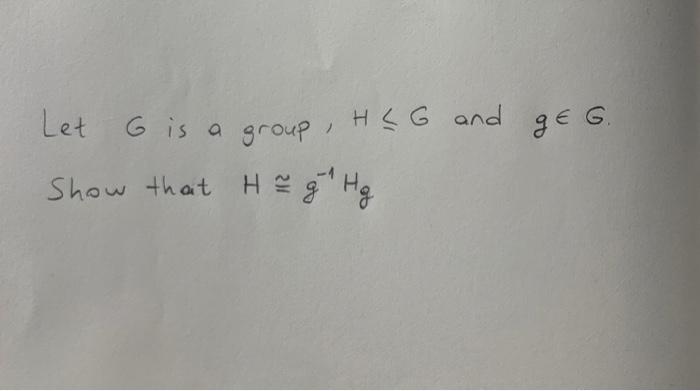 Let G is a group, H ≤ G and g ∈ G.
Show that H ≅ g⁻¹Hg